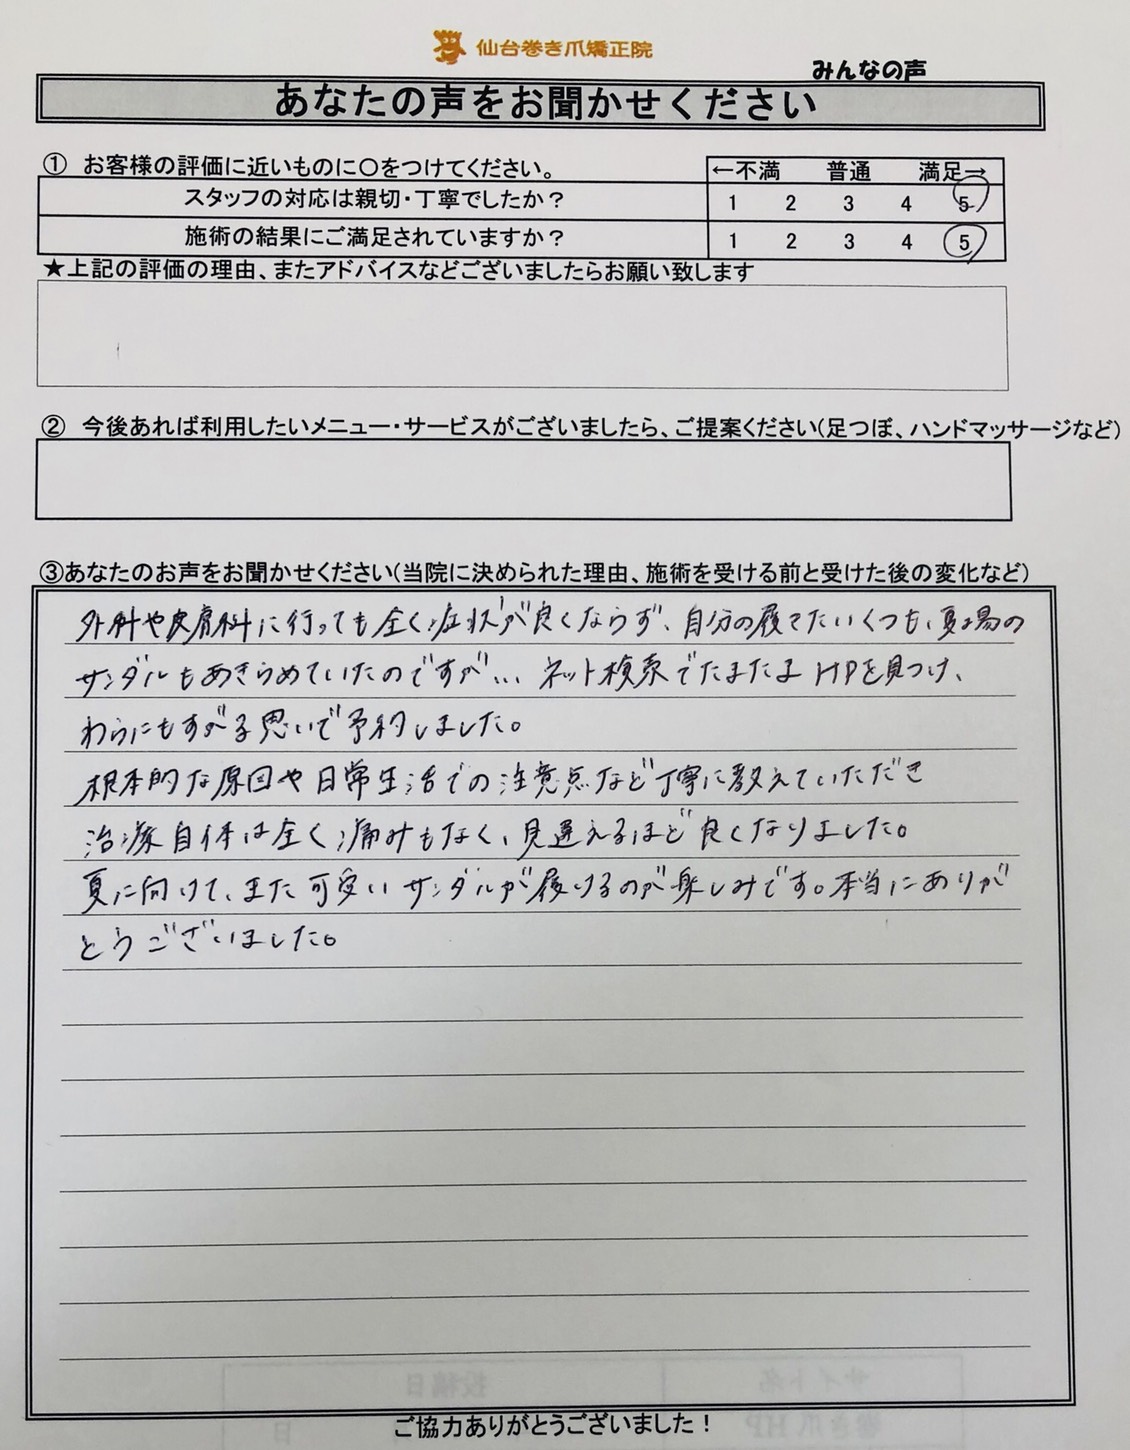 仙台巻き爪矯正院
みんなの声
あなたの声をお聞かせください
① お客様の評価に近いものに〇をつけてください。
←不満 普通 満足→
スタッフの対応は親切・丁寧でしたか？ 1 2 3 4 5
施術の結果にご満足されていますか？ 1 2 3 4 5
★上記の評価の理由、またアドバイスなどございましたらお願い致します
② 今後あれば利用したいメニュー・サービスがございましたら、ご提案ください(足つぼ、ハンドマッサージなど)
③あなたのお声をお聞かせください(当院に決められた理由、施術を受ける前と受けた後の変化など)
外科や皮膚科に行っても全く症状が良くならず、自分の履きたいくつも、夏場の
サンダルもあきらめていたのですが... ネット検索でたまたまHPを見つけ、
わらにもすがる思いで予約しました。
根本的な原因や日常生活での注意点など丁寧に教えていただき
治療自体は全く痛みもなく、見違えるほど良くなりました。
夏に向けて、また可愛いサンダルが履けるのが楽しみです。本当にありが
とうございました。
サイト名 投稿日
巻き爪HP 日
ご協力ありがとうございました！